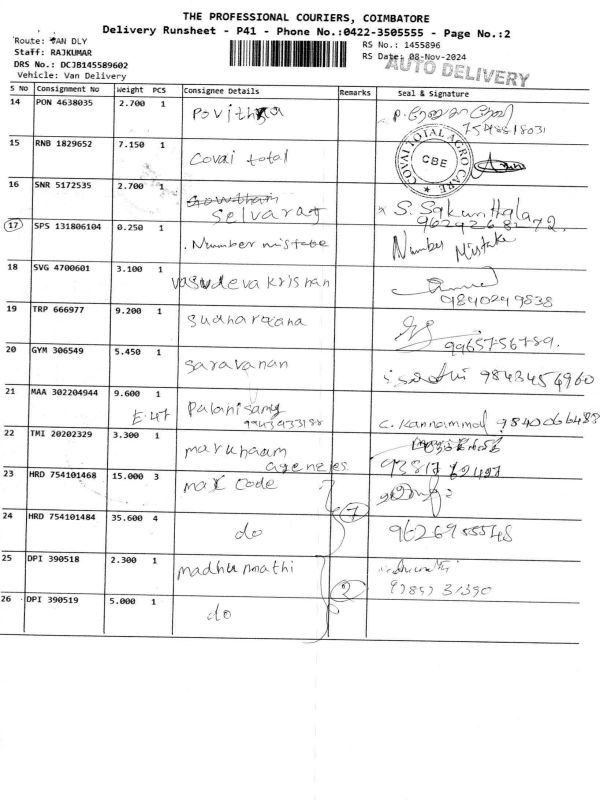 THE PROFESSIONAL COURIERS, COIMBATORE
Delivery Runsheet - P41 - Phone No.:0422-3505555 - Page No.:2
Route: VAN DLY
RS No.: 1455896
Staff: RAJKUMAR
RS Date: 08-Nov-2024
DRS No.: DCJB145589602
AUTO DELIVERY
Vehicle: Van Delivery
S No Consignment No Weight PCS Consignee Details Remarks Seal & Signature
14 PON 4638035 2.700 1 Povithra
15 RNB 1829652 7.150 1 Covai total
COVAI TOTAL AGRO CARE
CBE
16 SNR 5172535 2.700 1 Gowtham
Selvaraj S. Sakunthala
17 SPS 131806104 0.250 1 Number mistake Number Mistake
18 SVG 4700601 3.100 1 vasudeva krishnan
9840249838
19 TRP 666977 9.200 1 Sudhardana
9965756789.
20 GYM 306549 5.450 1 Saravanan
9843454960
21 MAA 302204944 9.600 1 Palanisamy C. Kannammal 9840066483
E.47
22 TMI 20202329 3.300 1
agencies
23 HRD 754101468 15.000 3 mac code
7
24 HRD 754101484 35.600 4 do 9626955548
25 DPI 390518 2.300 1 madhumathi
2
26 DPI 390519 5.000 1 do